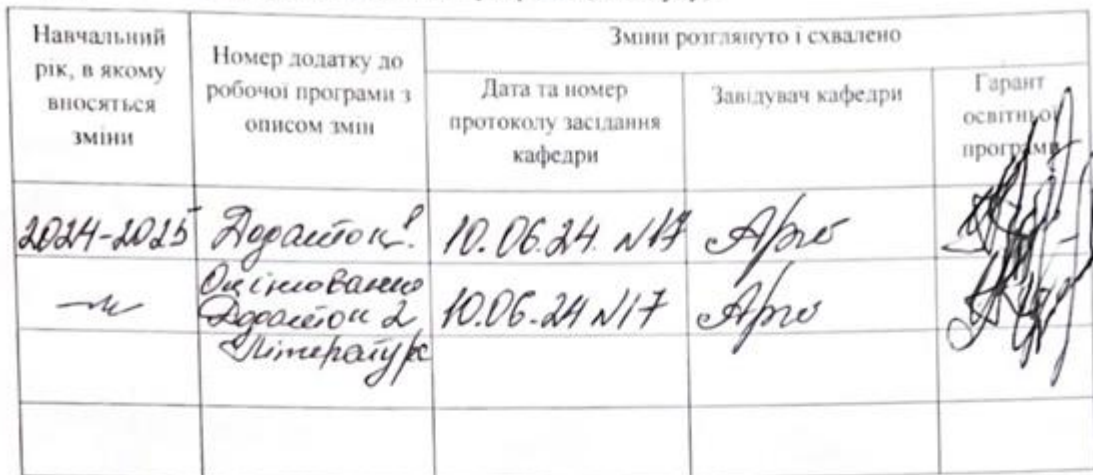 Навчальний
рік, в якому
вносяться
зміни
Номер додатку до
робочої програми з
описом змін
Зміни розглянуто і схвалено
Дата та номер
протоколу засідання
кафедри
Завідувач кафедри
Гарант
освітньої
програми
2024-2025 Додаток 1. 10.06.24 №17
Оцінювання
Додаток 2 10.06.24 №17
Література